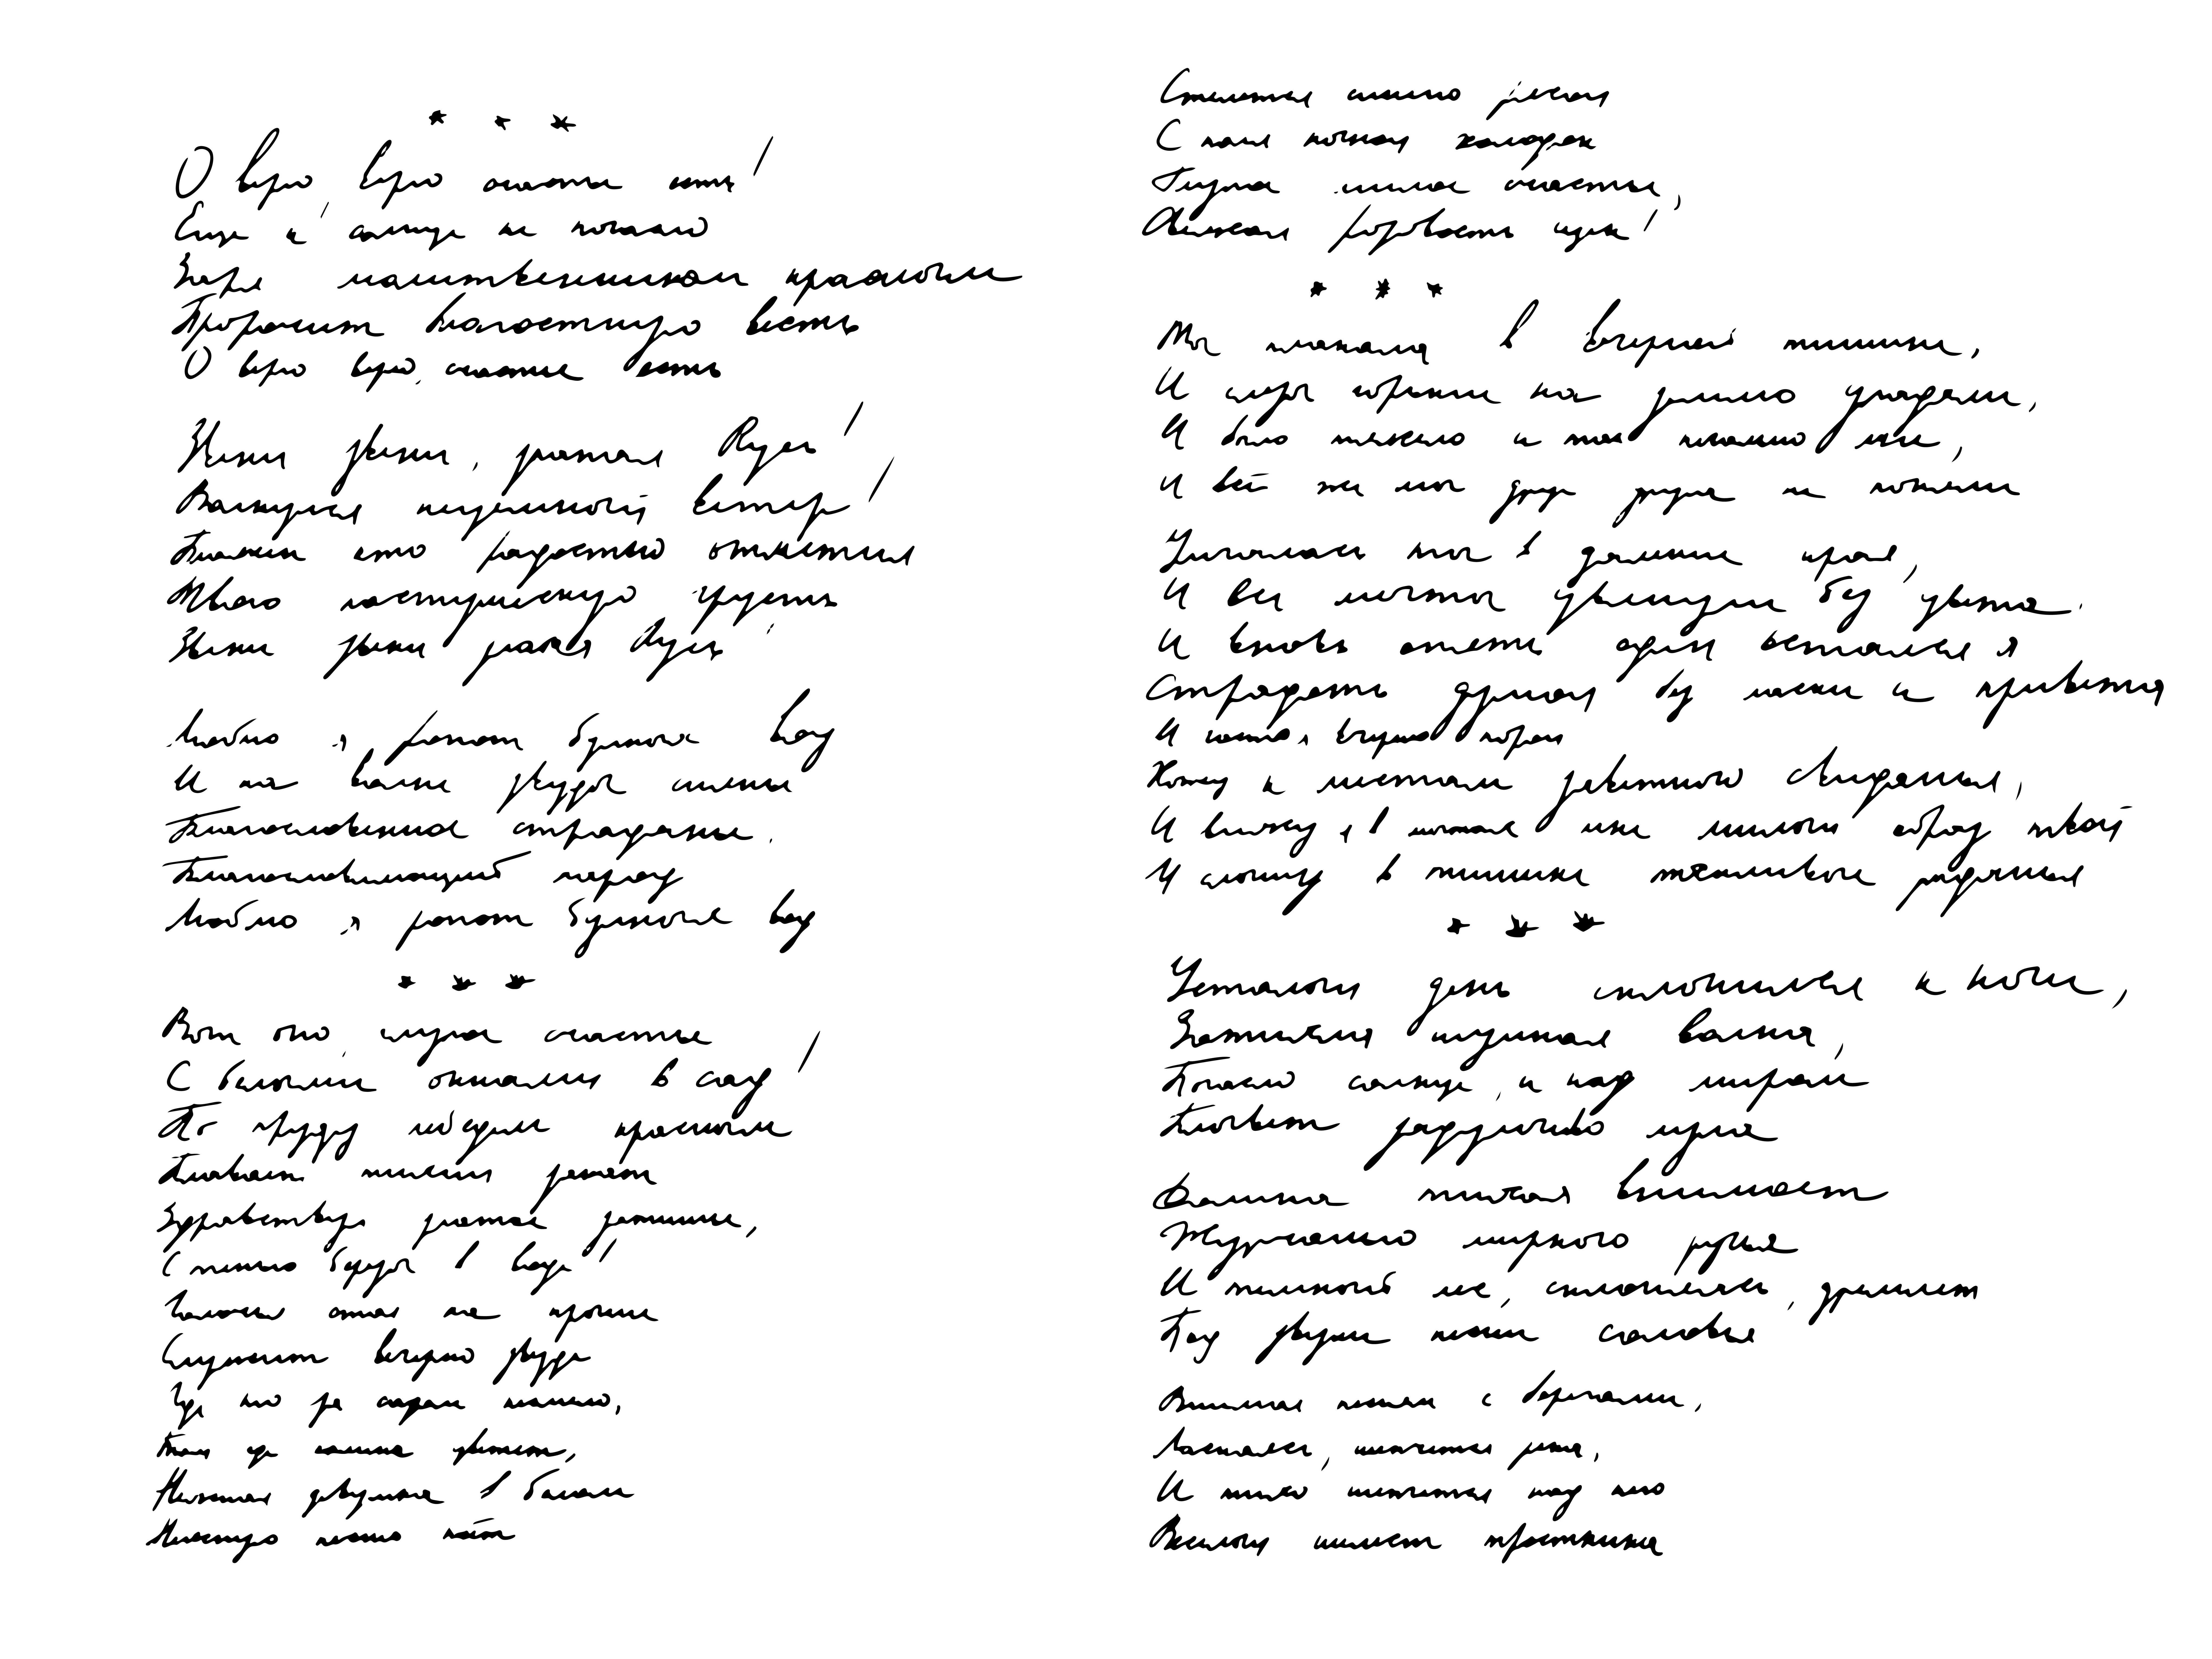 * * *
О верю, верю счастье есть!
Еще и солнце не погасло
Заря молитвенником красным
Пророчит благостную весть
О верю верю, счастье есть

Звени звени, златая Русь!
Волнуйся неуемный ветер!
Блажен кто радостью отметил
Твою пастушескую грусть
Звени звени златая Русь!

Люблю я ропот буйных вод
И на волне звезды сиянье
Благословенное страданье.
Благословляющий народ
Люблю я ропот буйных вод
* * *
Вот оно, глупое счастье
С белыми окнами в сад!
По пруду лебедем красным
Плавает тихий закат
Здравствуй златое затишье,
С тенью березы в воде!
Галочья стая на крыше
Служит вечерню звезде
Где то за садом несмело,
Там где калина цветет,
Нежная девушка в белом
Нежную песню поёт
Стелется синею рясой
С поля ночной холодок
Глупое милое счастье,
Свежая розовость щек!
* * *
Ты плакала в вечерней тишине,
И слезы горькие на землю упадали,
И было тяжело и так печально мне,
И всё же мы друг друга не поняли
Умчалась ты в далекие края,
И все мечты увянули без цвета.
И вновь опять один остался я
Страдать душой без ласки и привета
И часто я вечернею порой
Хожу к местам заветного свиданья,
И вижу я в мечтах мне милый образ твой
И слышу в тишине тоскливые рыданья
* * *
Усталый день склонился к ночи,
Затихла шумная волна,
Погасло солнце, и над миром
Плывет задумчиво луна

Долина тихая внимает
Журчанью мирного ручья
И темный лес, склоняясь, дремлет
Под звуки песни соловья

Внимая песням с берегами,
Ласкаясь, шепчется река,
И тихо слышится над нею
Веселый шелест тростника